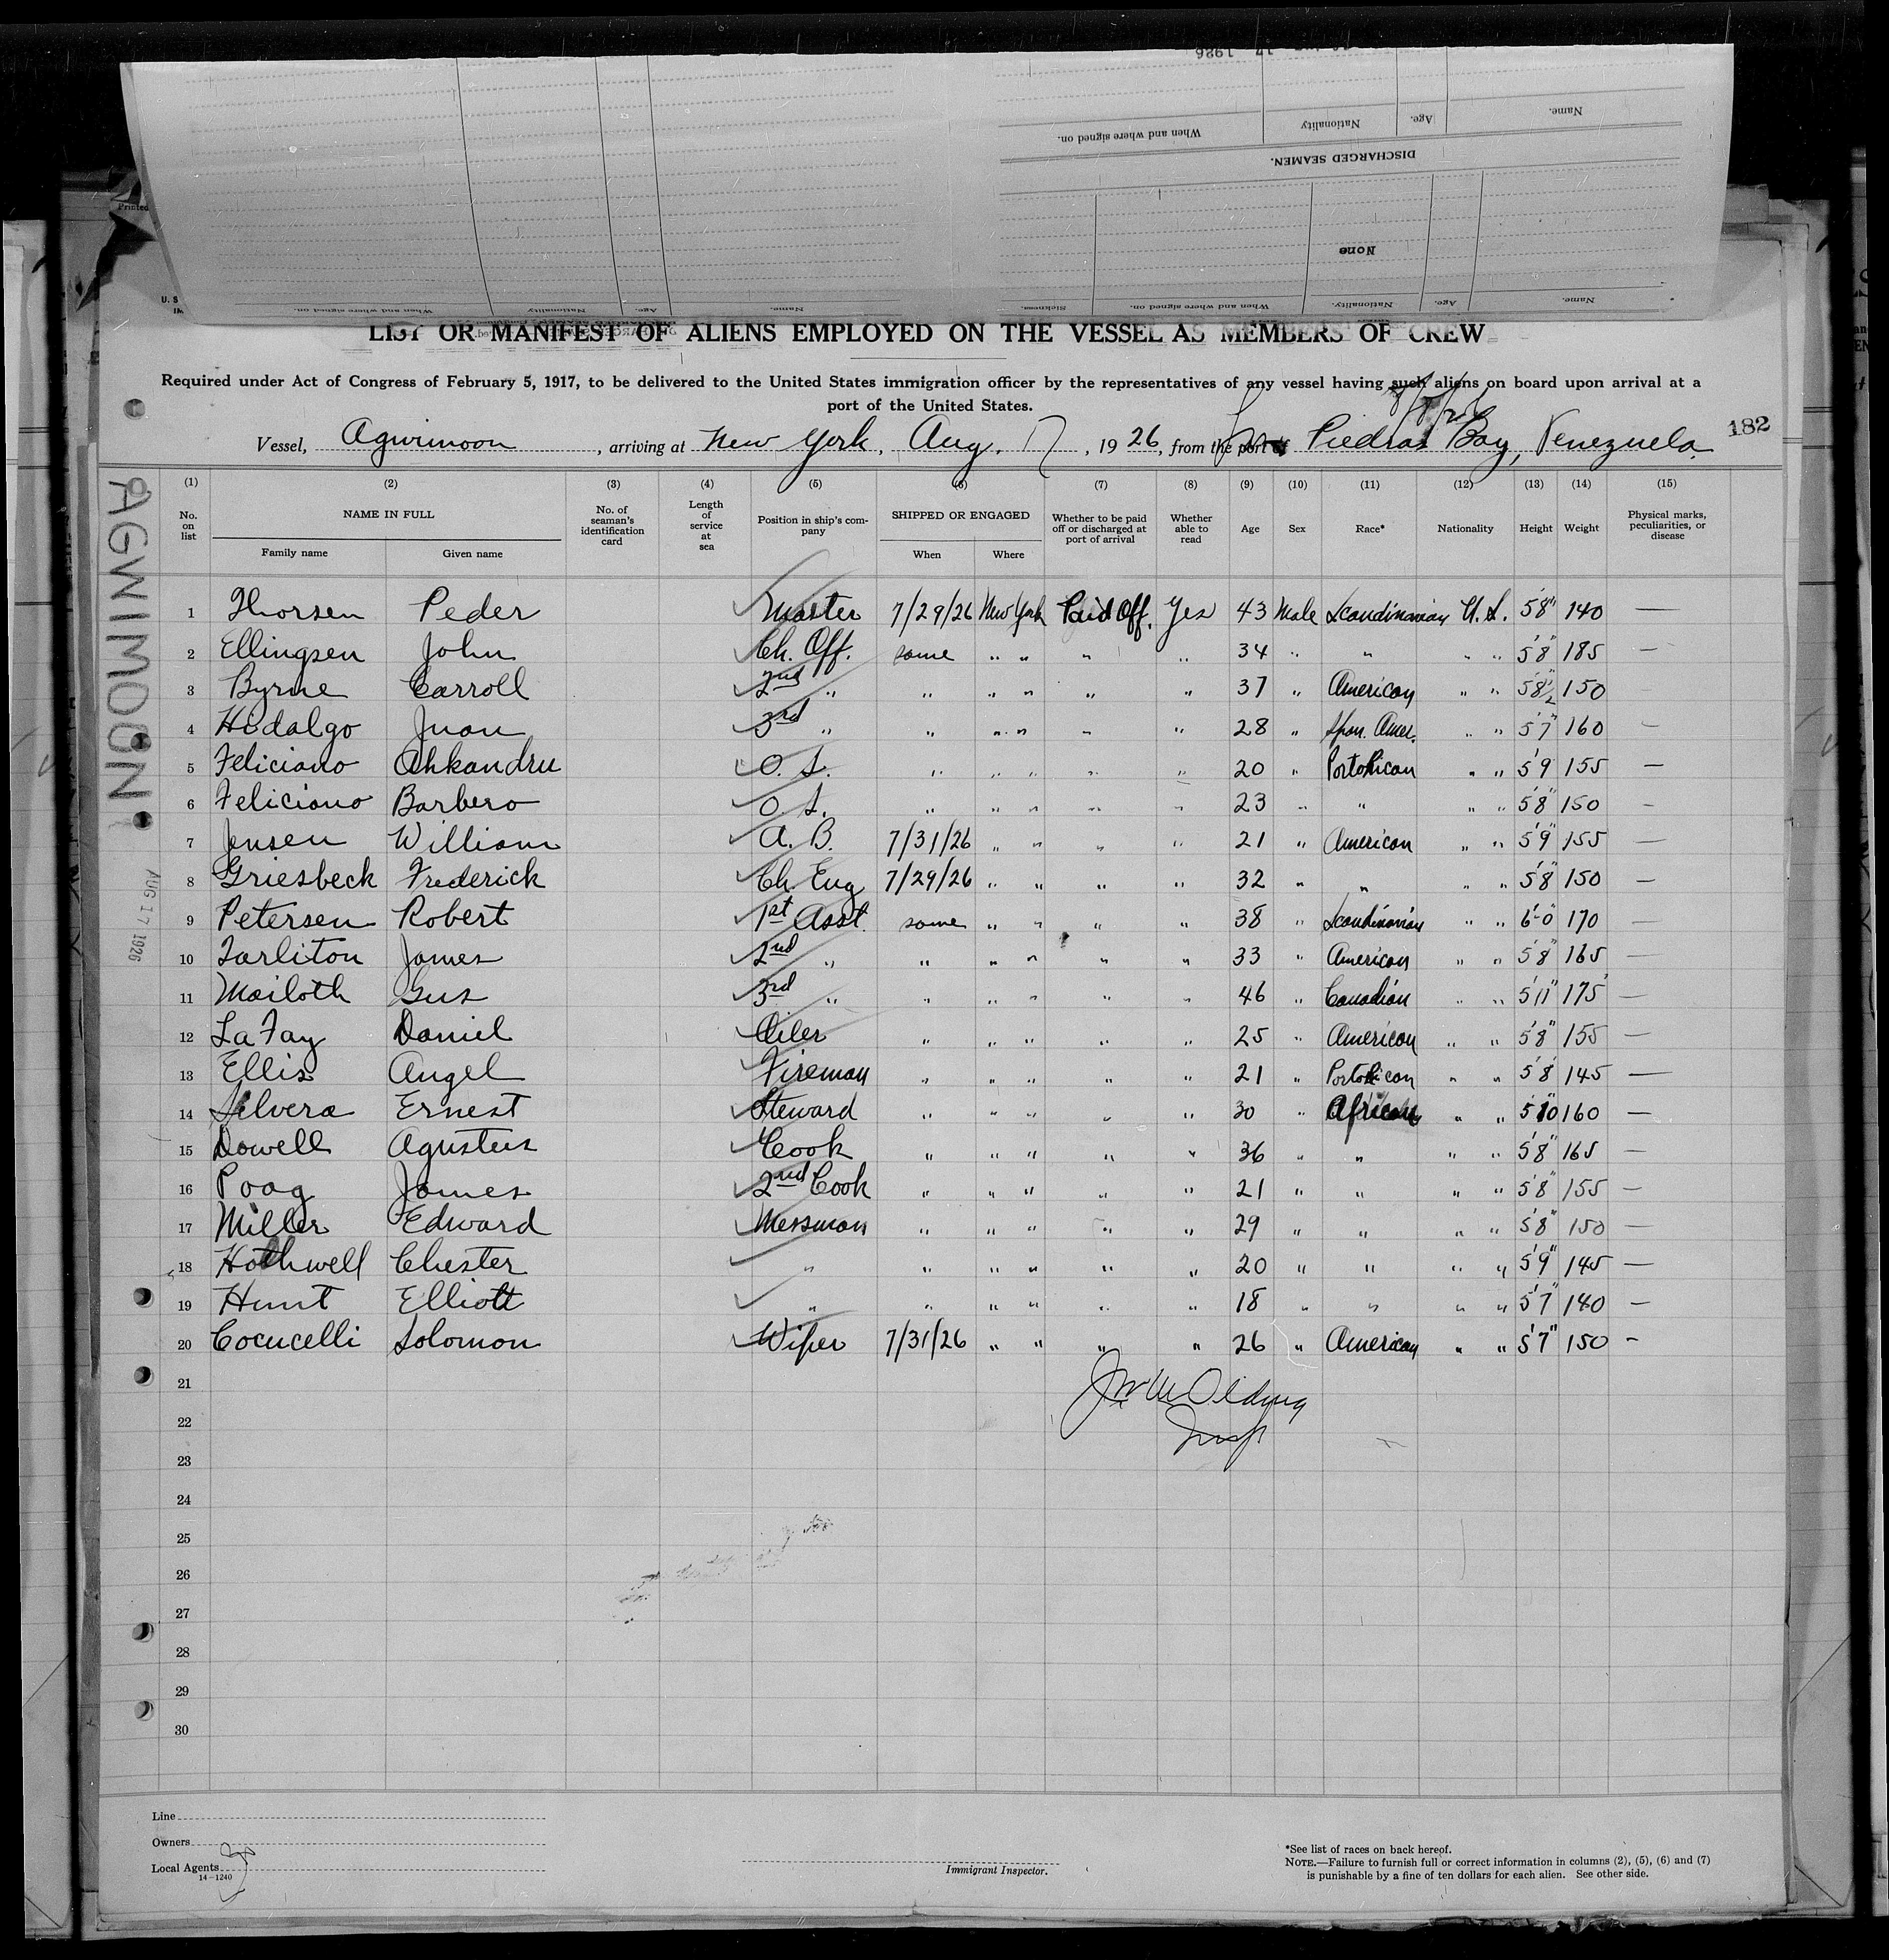 1926
Name.
Age.
Nationality
When and where signed on.
DISCHARGED SEAMEN.
None
Name.
Age.
Nationality.
When and where signed on.
Sickness.
Name.
Age.
Nationality
When and where signed on.
Printed
U. S
LIST OR MANIFEST OF ALIENS EMPLOYED ON THE VESSEL AS MEMBERS OF CREW
Required under Act of Congress of February 5, 1917, to be delivered to the United States immigration officer by the representatives of any vessel having such aliens on board upon arrival at a
port of the United States.
182
Vessel, Agwimoon, arriving at New York, Aug. 17, 1926, from the port of Piedras Bay, Venezuela.
AGWIMOON
AUG 17 1926
(1) (2) (3) (4) (5) (6) (7) (8) (9) (10) (11) (12) (13) (14) (15)
No. on list NAME IN FULL Family name Given name No. of seaman's identification card Length of service at sea Position in ship's company SHIPPED OR ENGAGED When Where Whether to be paid off or discharged at port of arrival Whether able to read Age Sex Race* Nationality Height Weight Physical marks, peculiarities, or disease
1 Thorsen Peder Master 7/29/26 New York Paid Off. Yes 43 Male Scandinavian U.S. 5'8" 140 —
2 Ellingsen John Ch. Off. same " " " " 34 " " " " 5'8" 185 —
3 Byrne Carroll 2nd " " " " " " 37 " American " " 5'8½ 150 —
4 Hidalgo Juan 3rd " " " " " " 28 " Span. Amer. " " 5'7" 160 —
5 Feliciano O.S. " " " " " 20 " Porto Rican " " 5'9 155 —
6 Feliciano Barbero O.S. " " " " " 23 " " " " 5'8" 150 —
7 Jensen William A.B. 7/31/26 " " " " 21 " American " " 5'9" 155 —
8 Griesbeck Frederick Ch. Eng 7/29/26 " " " " 32 " " " " 5'8" 150 —
9 Petersen Robert 1st Asst. same " " " " 38 " Scandinavian " " 6'-0" 170 —
10 Tarliton James 2nd " " " " " " 33 " American " " 5'8" 165 —
11 Mailoth Gus 3rd " " " " " " 46 " Canadian " " 5'11" 175 —
12 LaFay Daniel Oiler " " " " " 25 " American " " 5'8" 155 —
13 Ellis Angel Fireman " " " " " 21 " Porto Rican " " 5'8" 145 —
14 Silvera Ernest Steward " " " " " 30 " African " " 5'10 160 —
15 Dowell Agustus Cook " " " " " 36 " " " " 5'8" 165 —
16 Poag James 2nd Cook " " " " " 21 " " " " 5'8" 155 —
17 Miller Edward Messman " " " " " 29 " " " " 5'8" 150 —
18 Hothwell Chester " " " " " " 20 " " " " 5'9" 145 —
19 Hunt Elliott " " " " " " 18 " " " " 5'7" 140 —
20 Cocucelli Solomon Wiper 7/31/26 " " " " 26 " American " " 5'7" 150 -
21
22
Insp
23
24
25
26
27
28
29
30
Line
Owners
Local Agents
14—1240
Immigrant Inspector.
*See list of races on back hereof.
NOTE.—Failure to furnish full or correct information in columns (2), (5), (6) and (7)
is punishable by a fine of ten dollars for each alien. See other side.